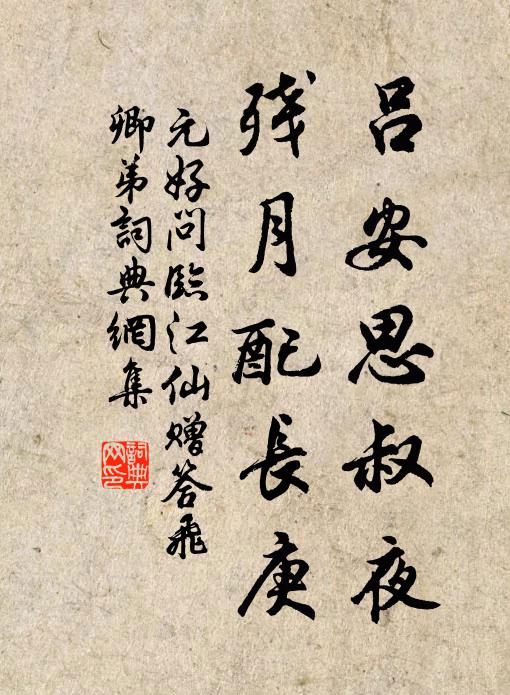 吕安思叔夜
残月配長庚
元好问臨江仙赠答飛
卿弟詞典網集
詞典網印